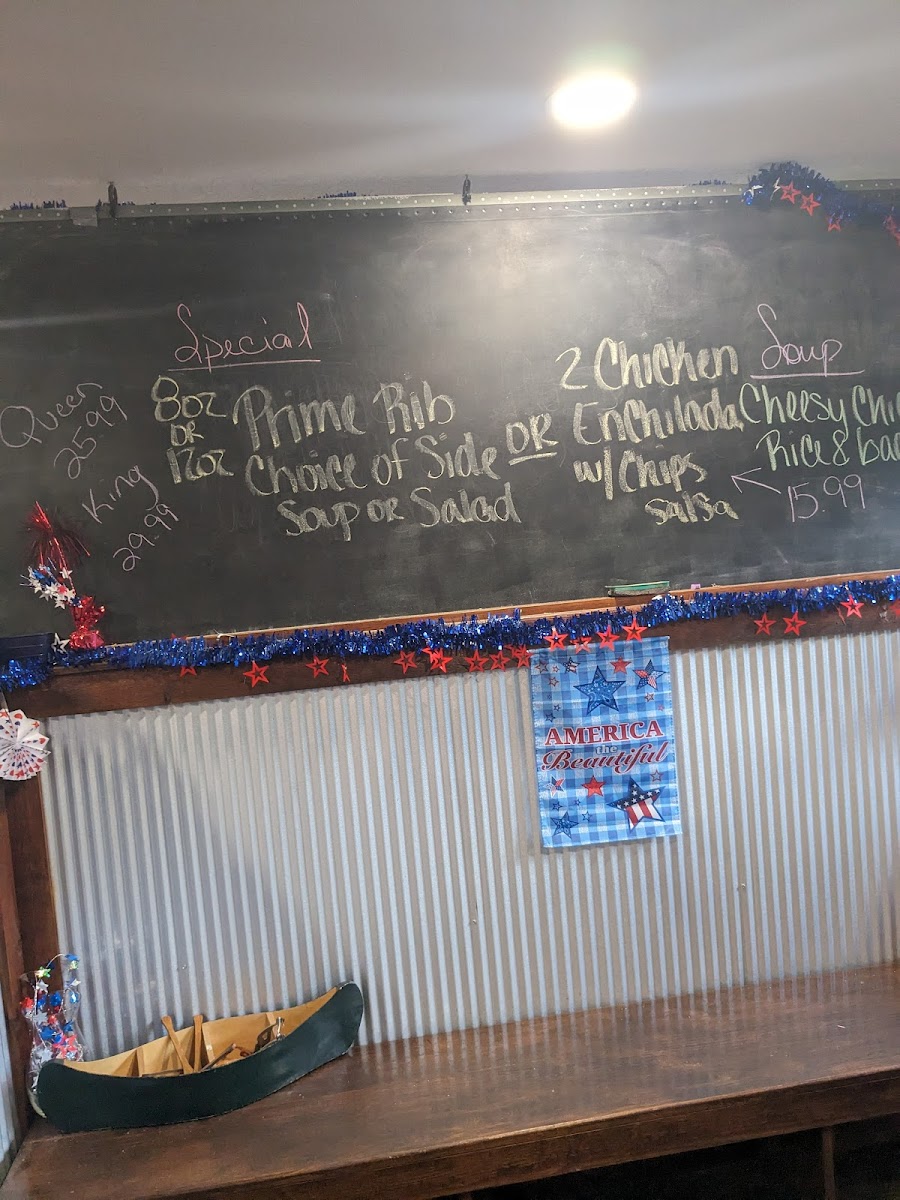 Special
Queen
25.99
King
29.99
8oz
OR
12oz
Prime Rib
Choice of Side
Soup or Salad
OR
2 Chicken
Enchilada
w/ Chips
Salsa
15.99
Soup
Cheesy
Rice &
AMERICA
the
Beautiful